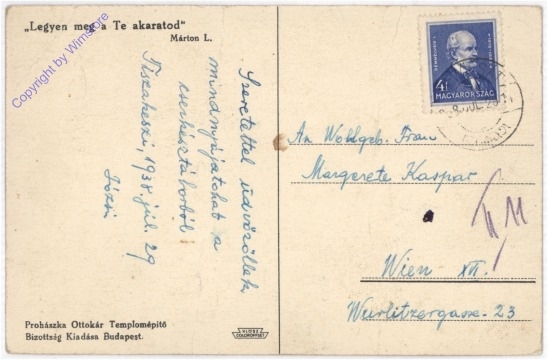 „Legyen meg a Te akaratod”
Márton L.
Copyright by Wimstore
Szeretettel üdvözöllek
mindnyájatokat a
cserkésztáborból:
Tiszakeszi, 1938. júl. 29
Józsi
Prohászka Ottokár Templomépítő
Bizottság Kiadása Budapest.
COLOROFFSET
SEMMELWEIS
4f
MAGYARORSZÁG
An Wohlgeb. Frau
Margerete Kaspar
Wien XII.
Wurlitzergasse 23